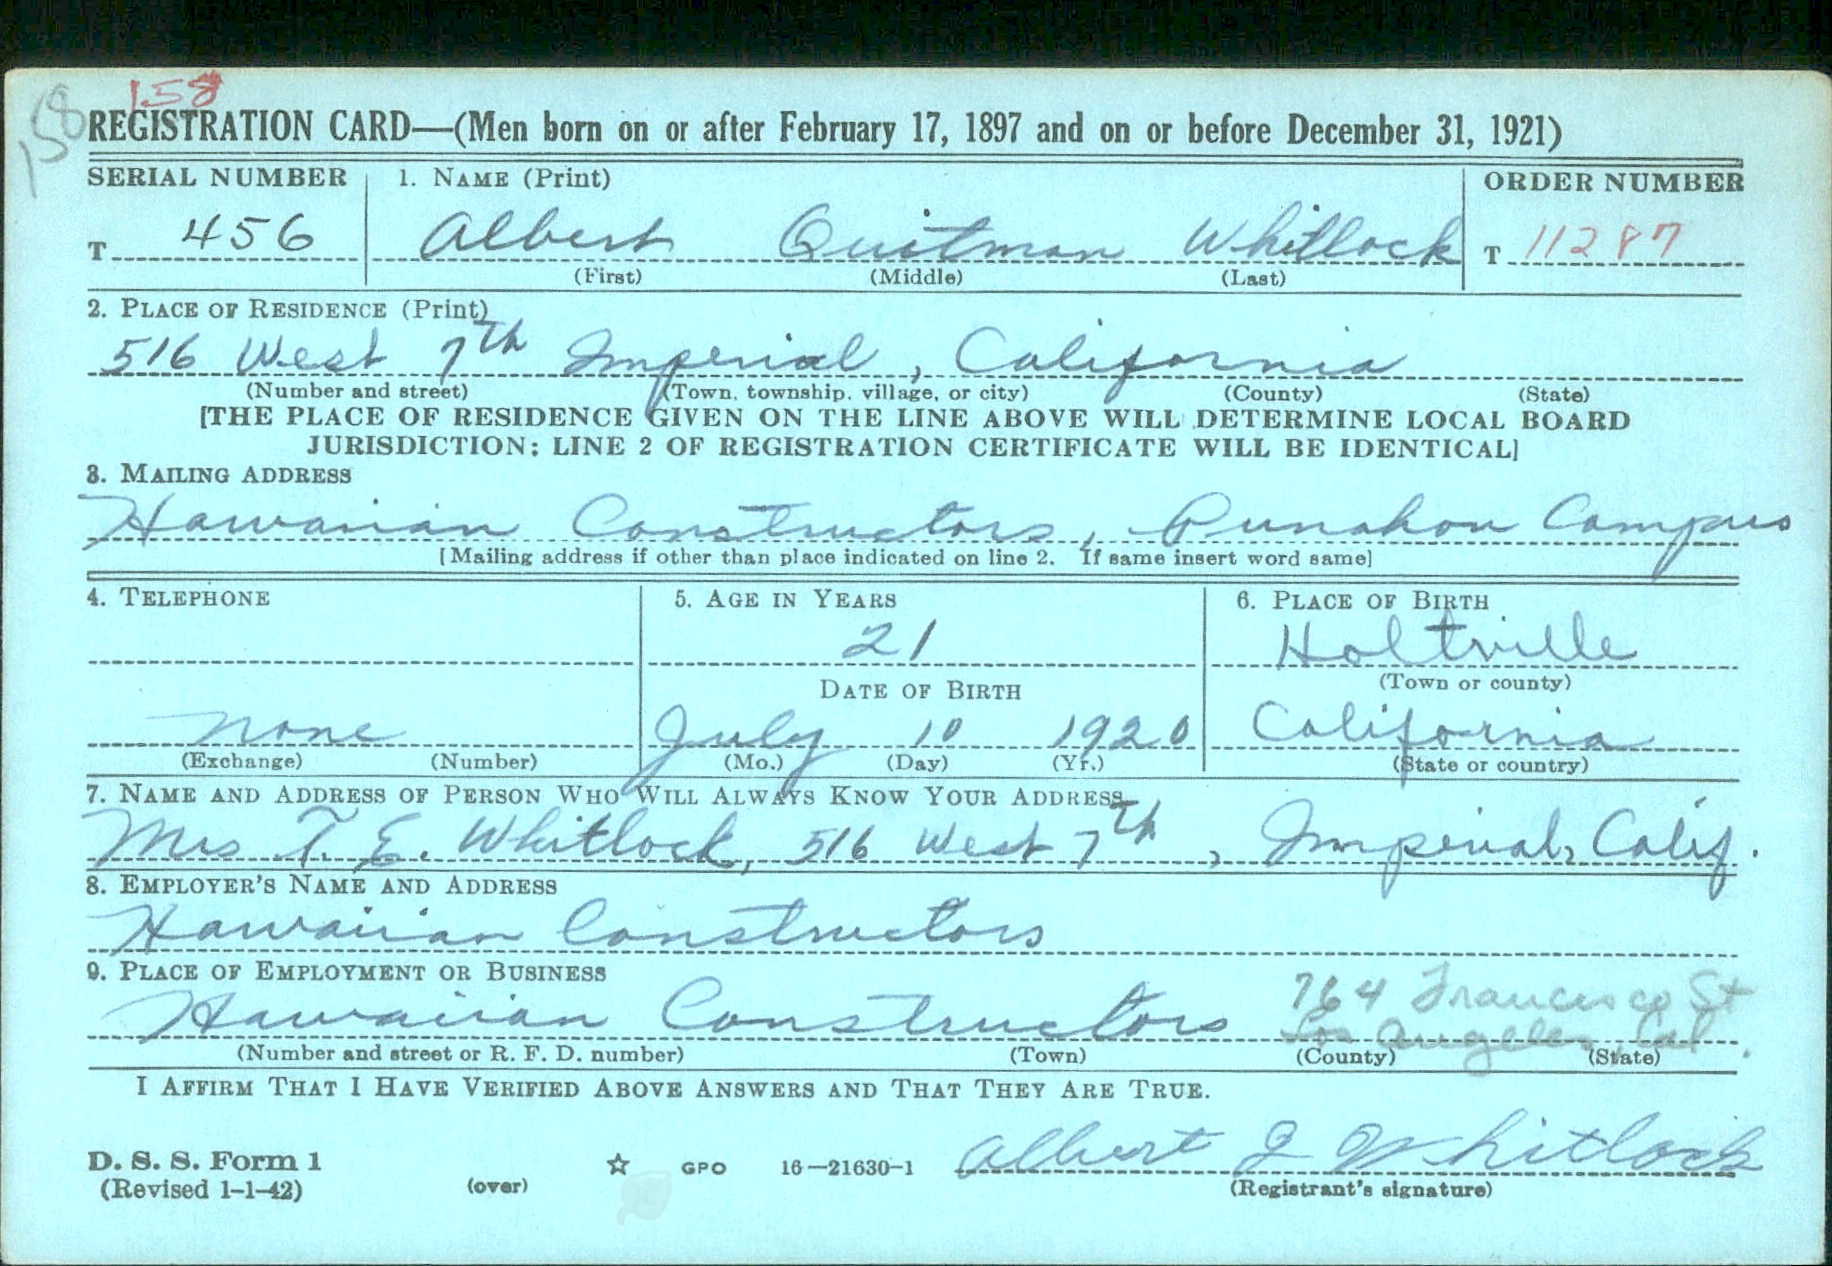 158
158
REGISTRATION CARD—(Men born on or after February 17, 1897 and on or before December 31, 1921)
SERIAL NUMBER 1. NAME (Print) ORDER NUMBER
T 456 Albert Quitman Whitlock T 11287
(First) (Middle) (Last)
2. PLACE OF RESIDENCE (Print)
516 West 7th Imperial, California
(Number and street) (Town, township, village, or city) (County) (State)
[THE PLACE OF RESIDENCE GIVEN ON THE LINE ABOVE WILL DETERMINE LOCAL BOARD
JURISDICTION; LINE 2 OF REGISTRATION CERTIFICATE WILL BE IDENTICAL]
3. MAILING ADDRESS
Hawaiian Constructors, Punahou Campus
[Mailing address if other than place indicated on line 2. If same insert word same]
4. TELEPHONE 5. AGE IN YEARS 6. PLACE OF BIRTH
21 Holtville
DATE OF BIRTH (Town or county)
none July 10 1920 California
(Exchange) (Number) (Mo.) (Day) (Yr.) (State or country)
7. NAME AND ADDRESS OF PERSON WHO WILL ALWAYS KNOW YOUR ADDRESS
Mrs T. E. Whitlock, 516 West 7th, Imperial, Calif.
8. EMPLOYER'S NAME AND ADDRESS
Hawaiian Constructors
9. PLACE OF EMPLOYMENT OR BUSINESS
Hawaiian Constructors 764 Francisco St
Los Angeles, Cal.
(Number and street or R. F. D. number) (Town) (County) (State)
I AFFIRM THAT I HAVE VERIFIED ABOVE ANSWERS AND THAT THEY ARE TRUE.
D. S. S. Form 1 ☆ GPO 16—21630-1 Albert Q Whitlock
(Revised 1-1-42) (over) (Registrant's signature)